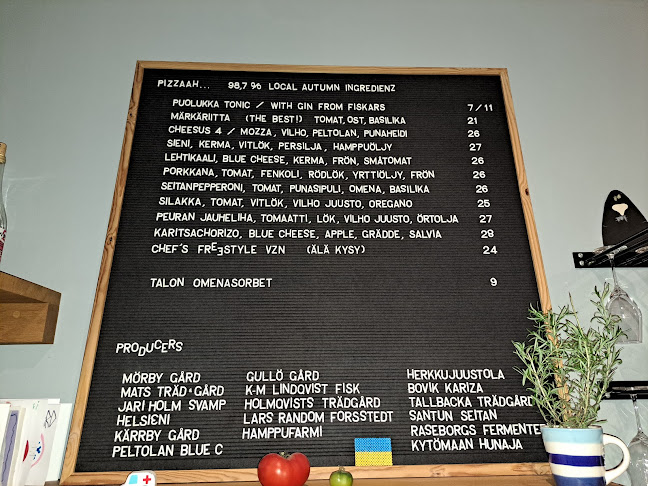 PIZZAAH... 98,7 % LOCAL AUTUMN INGREDIENZ
PUOLUKKA TONIC / WITH GIN FROM FISKARS 7/11
MÄRKÄRIITTA (THE BEST!) TOMAT, OST, BASILIKA 21
CHEESUS 4 / MOZZA, VILHO, PELTOLAN, PUNAHEIDI 26
SIENI, KERMA, VITLÖK, PERSILJA, HAMPPUÖLJY 27
LEHTIKAALI, BLUE CHEESE, KERMA, FRÖN, SMÅTOMAT 26
PORKKANA, TOMAT, FENKOLI, RÖDLÖK, YRTTIÖLJY, FRÖN 26
SEITANPEPPERONI, TOMAT, PUNASIPULI, OMENA, BASILIKA 26
SILAKKA, TOMAT, VITLÖK, VILHO JUUSTO, OREGANO 25
PEURAN JAUHELIHA, TOMAATTI, LÖK, VILHO JUUSTO, ÖRTOLJA 27
KARITSACHORIZO, BLUE CHEESE, APPLE, GRÄDDE, SALVIA 28
CHEF'S FREESTYLE VZN (ÄLÄ KYSY) 24
TALON OMENASORBET 9
PRODUCERS
MÖRBY GÅRD
MATS TRÄD•GÅRD
JARI HOLM SVAMP
HELSIENI
KÄRRBY GÅRD
PELTOLAN BLUE C
GULLÖ GÅRD
K-M LINDQVIST FISK
HOLMQVISTS TRÄDGÅRD
LARS RANDOM FORSSTEDT
HAMPPUFARMI
HERKKUJUUSTOLA
BOVIK KARIZA
TALLBACKA TRÄDGÅRD
SANTUN SEITAN
RASEBORGS FERMENTER
KYTÖMAAN HUNAJA